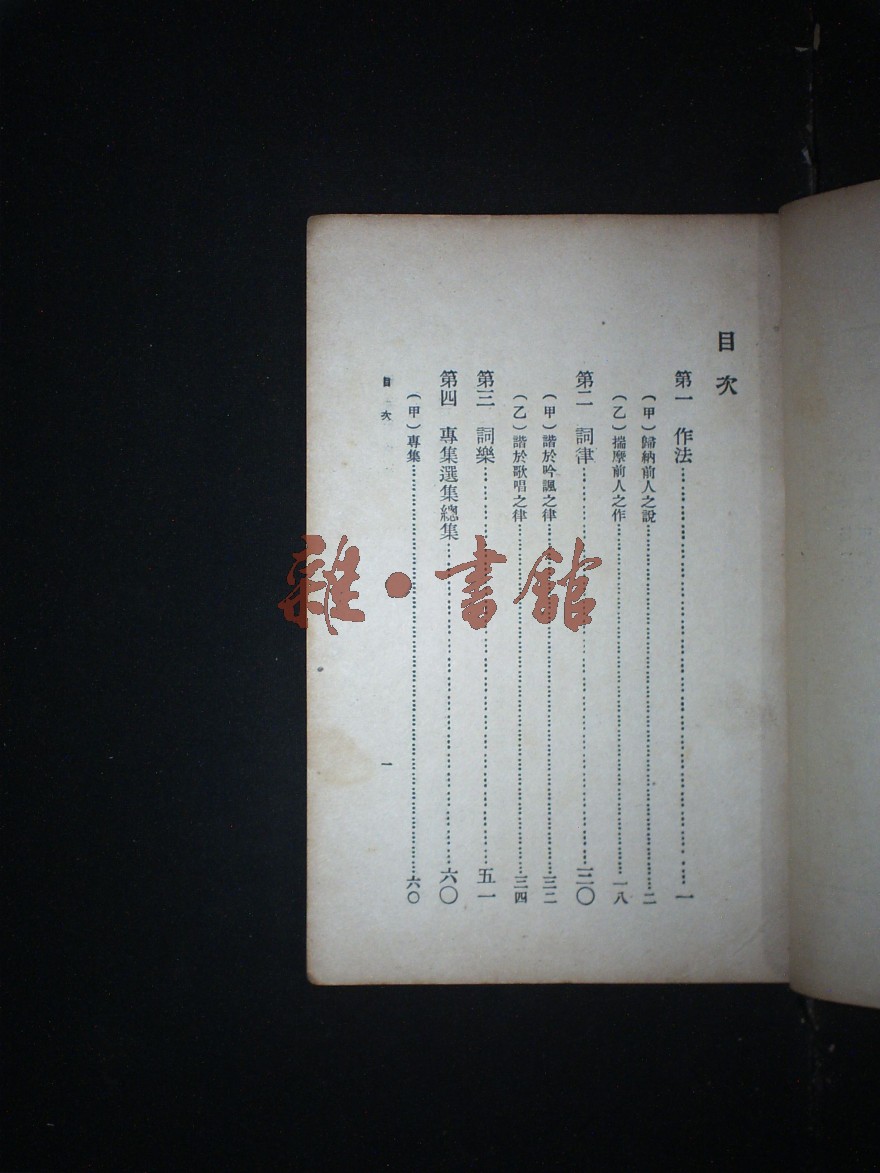 目次
第一　作法……一
（甲）歸納前人之說……二
（乙）揣摩前人之作……一八
第二　詞律……三〇
（甲）諧於吟諷之律……三二
（乙）諧於歌唱之律……三四
第三　詞樂……五一
第四　專集選集總集……六〇
（甲）專集……六〇
目次
一
雜·書館